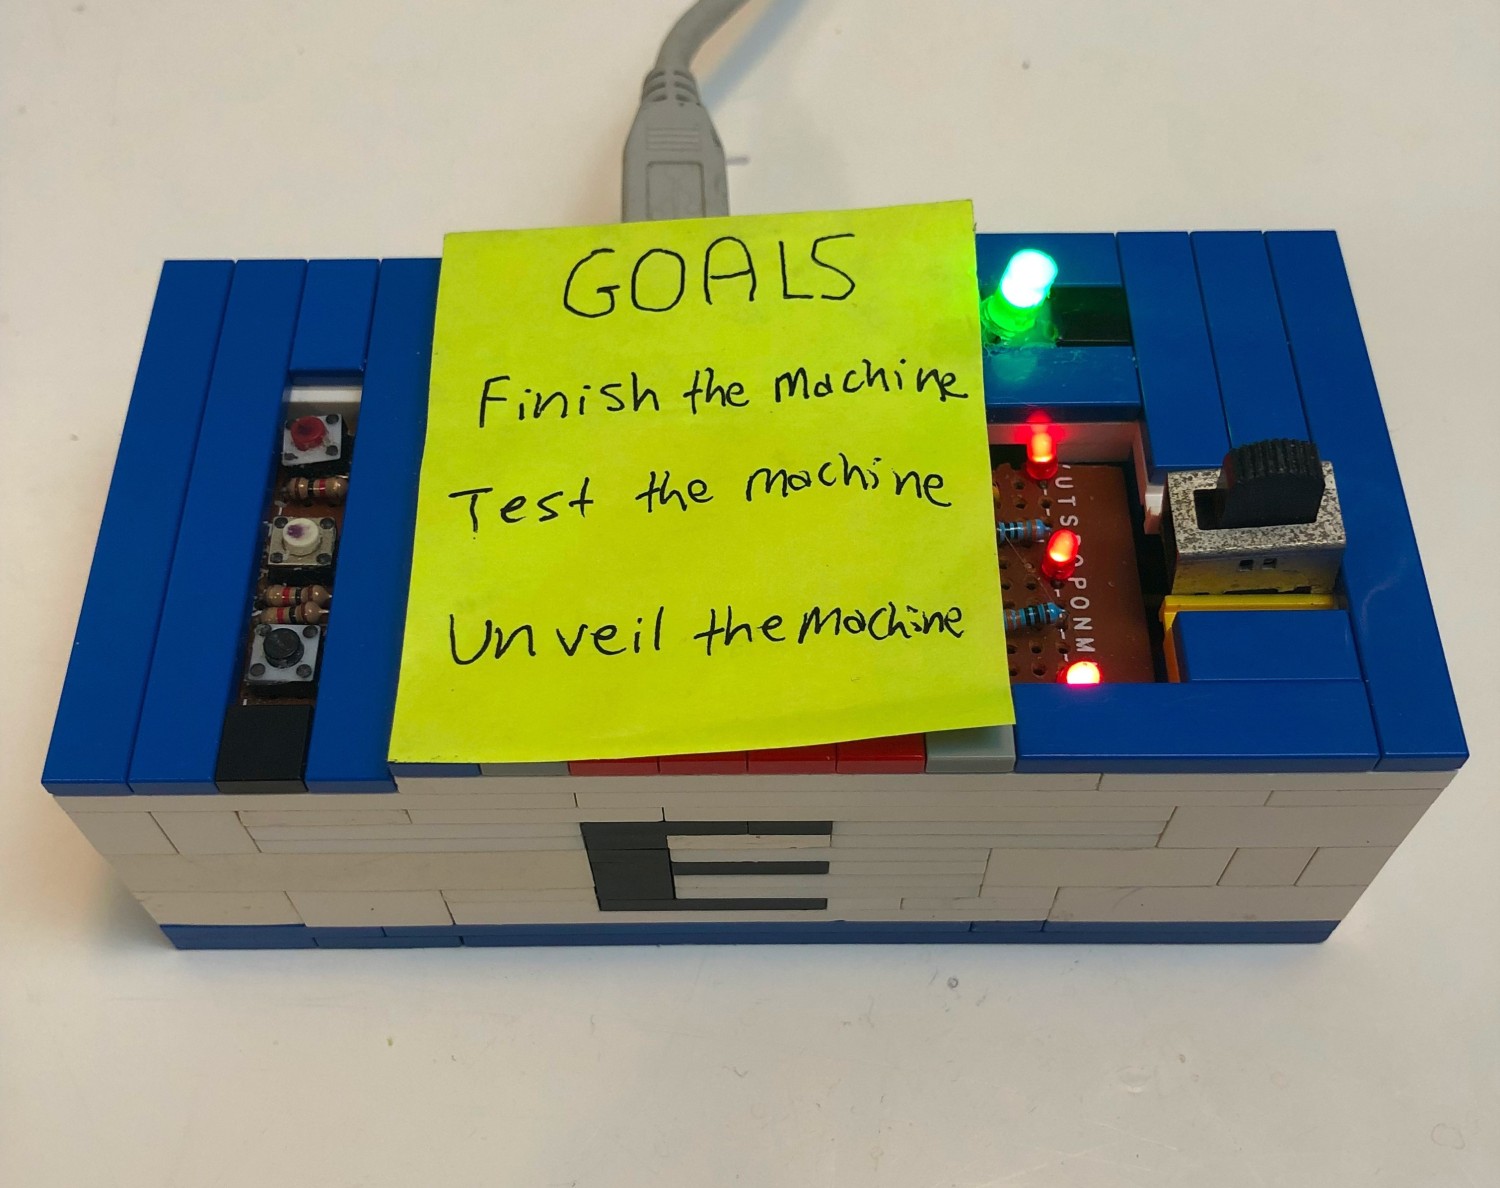 GOALS
Finish the machine
Test the machine
Unveil the machine
UTS
PONM
E